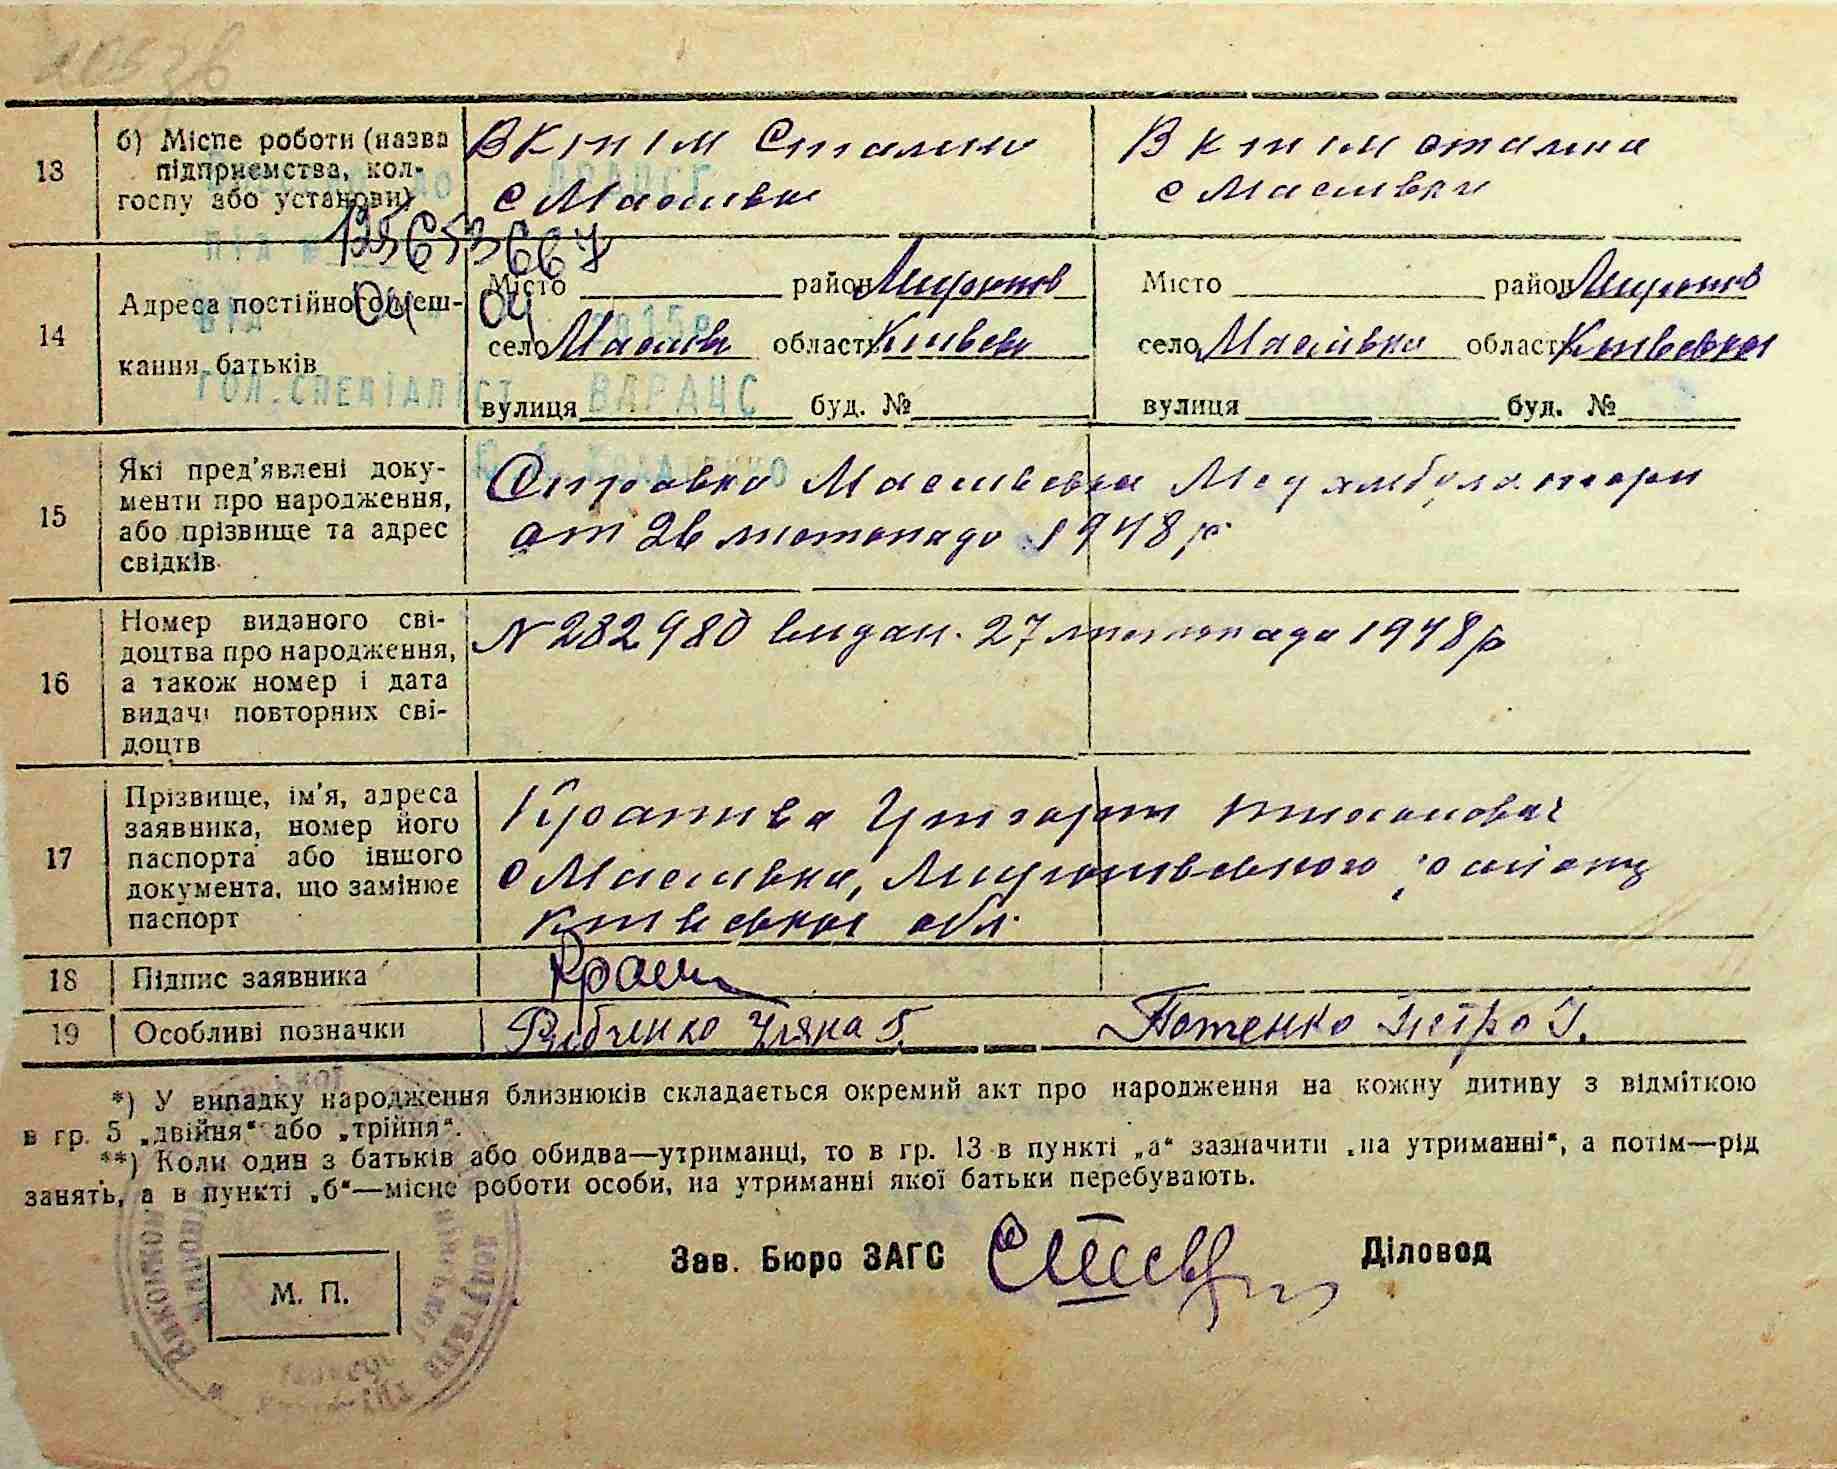 13
б) Місце роботи (назва
підприємства, кол-
госпу або установи)
В К т ім Сталіна
с Маслівка
В к т ім сталіна
с Маслівки
14
Адреса постійного меш-
кання батьків
Місто район Миронів
село Маслівк область Київськ
вулиця буд. №
Місто район Миронів
село Маслівка область Київська
вулиця буд. №
ГОЛ.СПЕЦІАЛІСТ ВДРАЦС
15
Які пред'явлені доку-
менти про народження,
або прізвище та адрес
свідків
Справка Маслівська Мед амбулаторія
от 26 листопада 1948 р
16
Номер виданого сві-
доцтва про народження,
а також номер і дата
видачі повторних сві-
доцтв
N 282980 видан. 27 листопада 1948 р
17
Прізвище, ім'я, адреса
заявника, номер його
паспорта або іншого
документа, що замінює
паспорт
Кропива Григорій
с Маслівка, Миронівського району
Київської обл.
18
Підпис заявника
19
Особливі позначки
Рябченко Уляна Г.
Потенко Петро І.
*) У випадку народження близнюків складається окремий акт про народження на кожну дитину з відміткою
в гр. 5 „двійня“ або „трійня“.
**) Коли один з батьків або обидва—утриманці, то в гр. 13 в пункті „а“ зазначити „на утриманні“, а потім—рід
занять, а в пункті „б“—місце роботи особи, на утриманні якої батьки перебувають.
Зав. Бюро ЗАГС
Діловод
М. П.